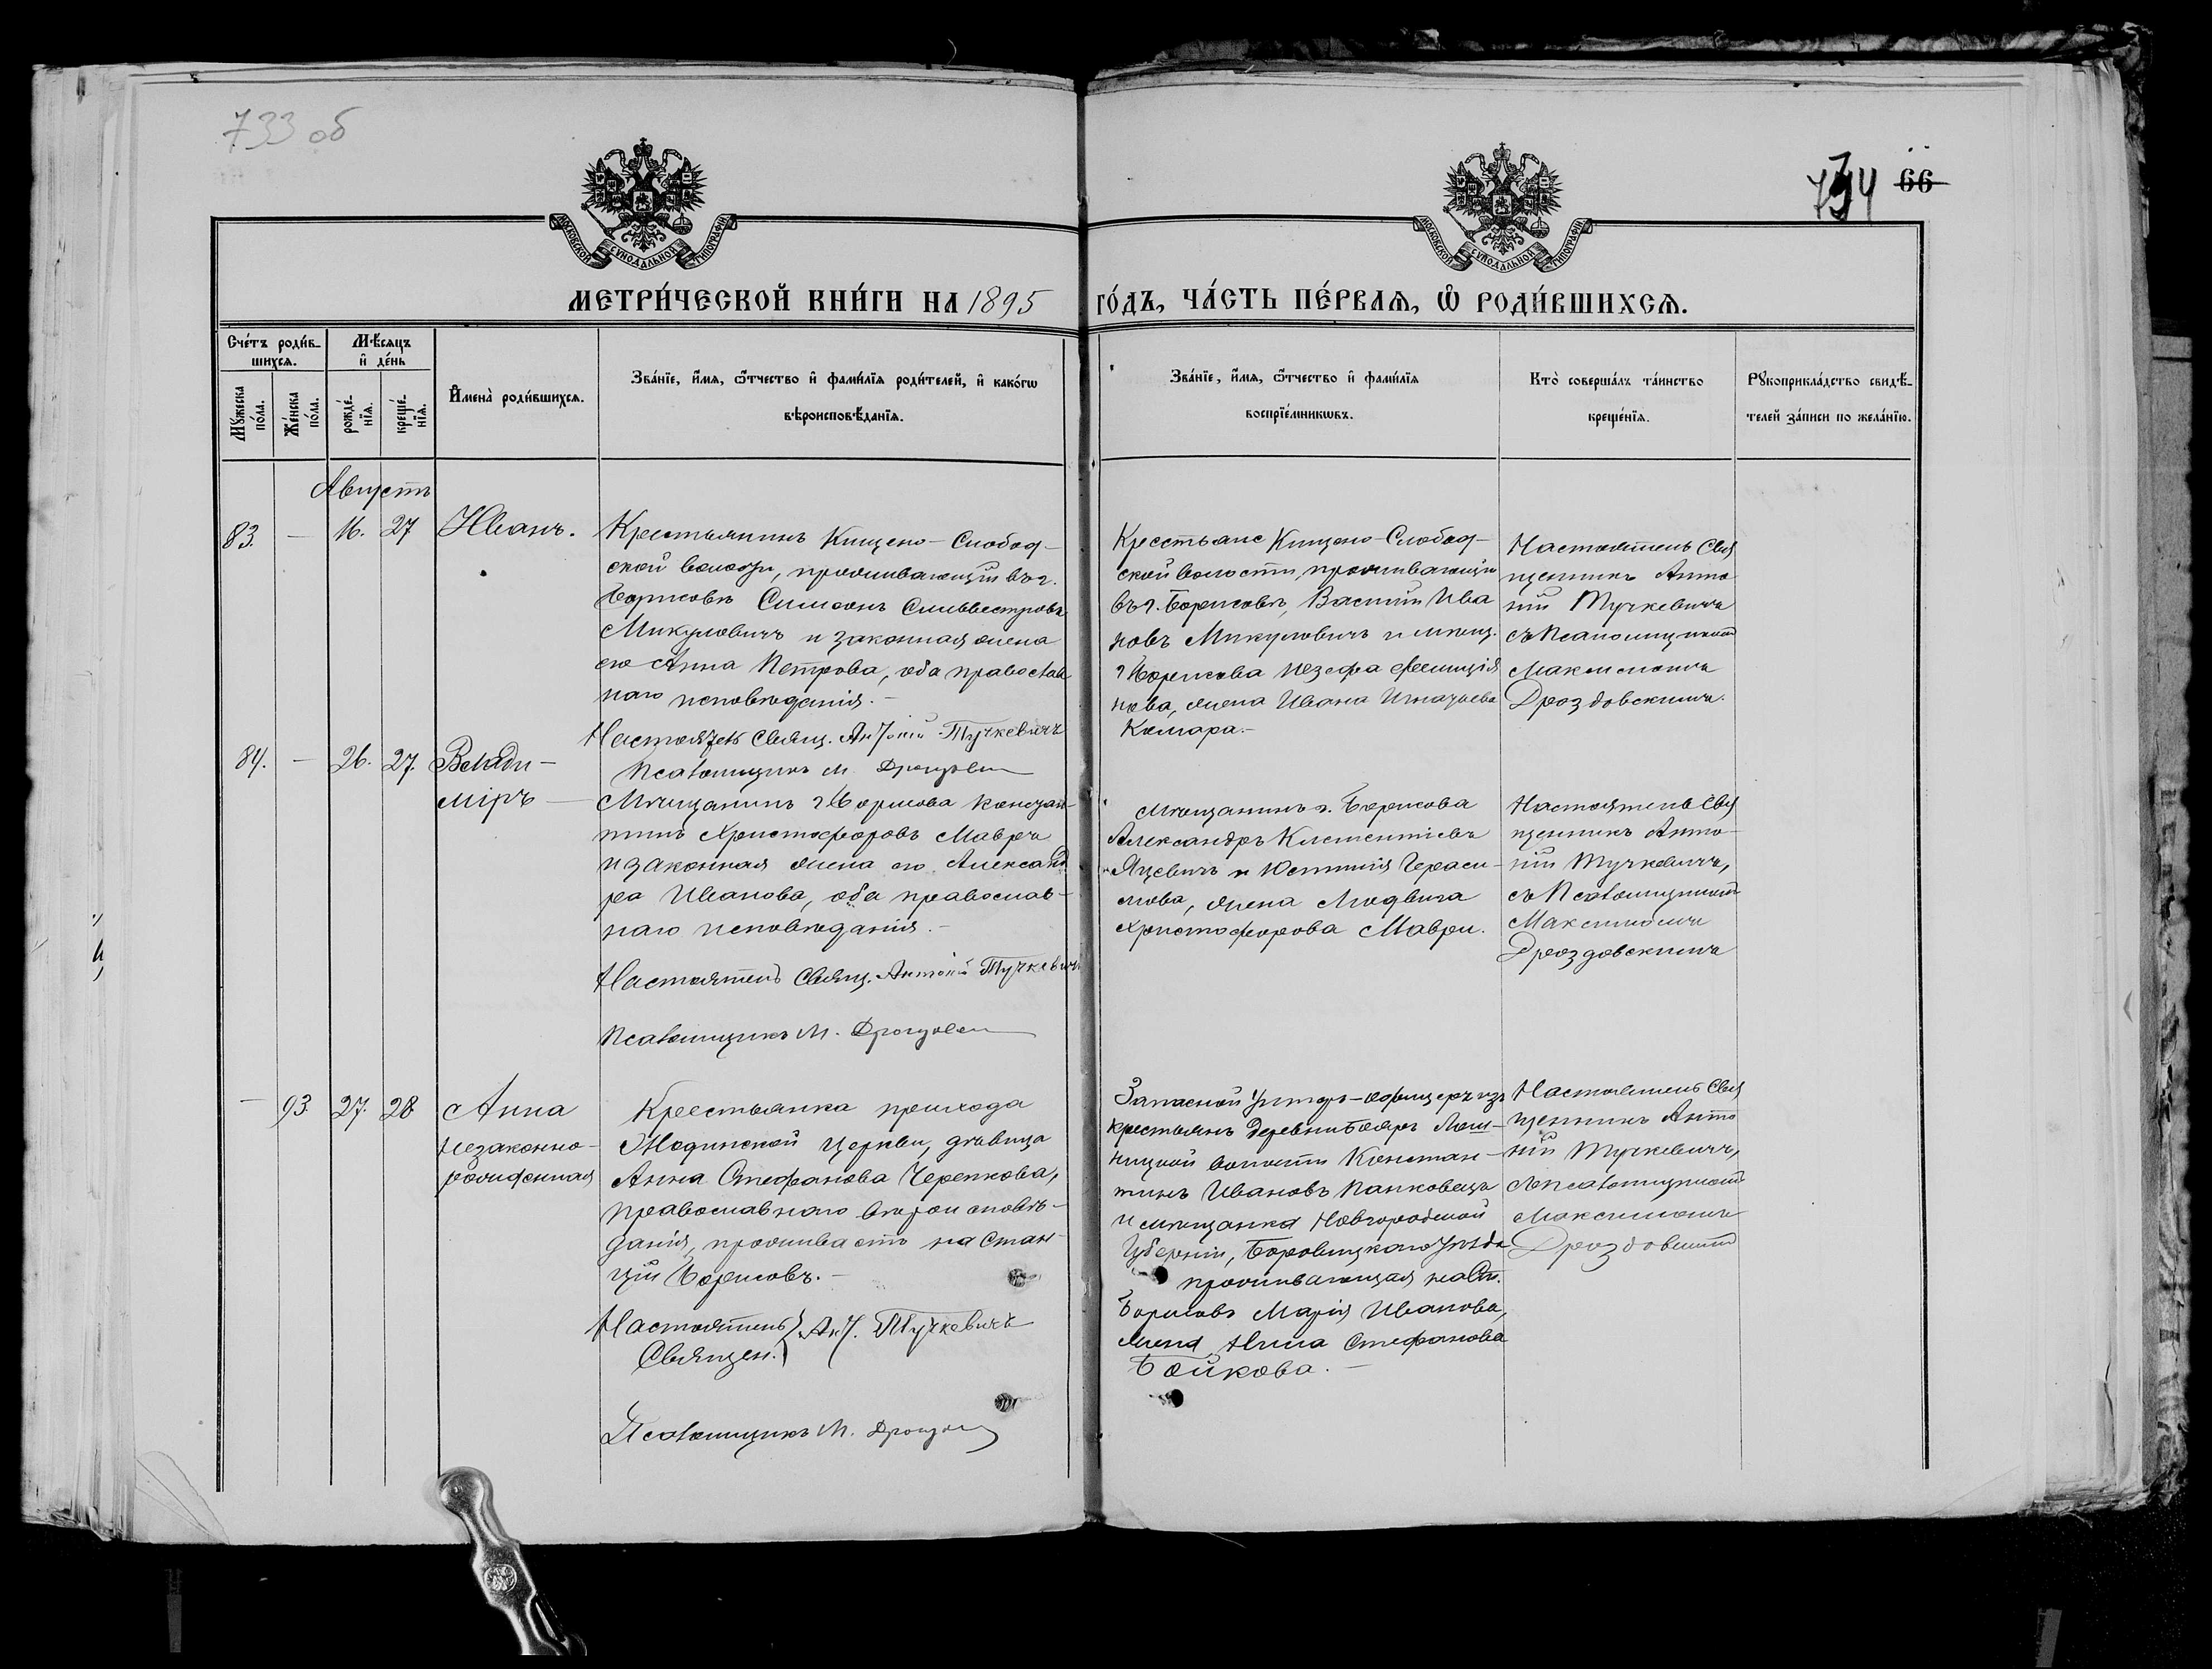 733 об
734 66
МОСКОВСКОЙ СѴНОДАЛЬНОЙ ТИПОГРАФІИ
МОСКОВСКОЙ СѴНОДАЛЬНОЙ ТИПОГРАФІИ
МЕТРИ́ЧЕСКОЙ КНИ́ГИ НА 1895 ГО́ДЪ, ЧА́СТЬ ПЕ́РВАѦ, Ѡ҆ РОДИ́ВШИХСѦ.
Сче́тъ роди́в-
шихсѧ.
Мꙋжеска по́ла.
Же́нска по́ла.
Мѣ́сѧцъ
и҆ де́нь
рожде́-нїѧ.
креще́-нїѧ.
И҆мена̀ роди́вшихсѧ.
Зва́нїе, и҆́мѧ, ѻ҆́тчество и҆ фами́лїѧ роди́телей, и҆ како́гѡ
вѣроисповѣ́данїѧ.
Зва́нїе, и҆́мѧ, ѻ҆́тчество и҆ фами́лїѧ
воспрїе́мникѡвъ.
Кто̀ соверша́лъ та́инство
креще́нїѧ.
Рꙋкоприкла́дство свидѣ́-
телей за́писи по жела́нїю.
Августъ
83. — 16. 27 Иванъ.
Крестьянинъ Кищено-Слобод-
ской волости, проживающій въ г.
Борисовѣ Симеонъ Сильвестровъ
Микуловичъ и законная жена
его Анна Петрова, оба православ
наго исповѣданія.—
Настоятель Свящ. Антоній Тучкевичъ
Псаломщикъ М. Дроздовскій
Крестьяне Кищено-Слобод-
ской волости, проживающіе
въ г. Борисовѣ, Василій Ива
новъ Микуловичъ и мѣщ.
г. Борисова Іозефа Фелиція
нова, жена Ивана Игнатьева
Комара.—
Настоятель Свя
щенникъ Анто
ній Тучкевичъ
съ Псаломщикомъ
Максимомъ
Дроздовскимъ.
84. — 26. 27. Влади-
міръ —
Мѣщанинъ г. Борисова Констан-
тинъ Христофоровъ Мавръ
и законная жена его Александ
ра Иванова, оба православ-
наго исповѣданія.—
Настоятель Свящ. Антоній Тучкевичъ
Псаломщикъ М. Дроздовскій
Мѣщанинъ г. Борисова
Александръ Климентіевъ
Яцевичъ и Юстинія Гераси-
мова, жена Людвига
Христофорова Мавры.
Настоятель Свя
щенникъ Анто-
ній Тучкевичъ,
съ Псаломщикомъ
Максимомъ
Дроздовскимъ
— 93. 27. 28 Анна
незаконно-
рожденная
Крестьянка прихода
церкви, дѣвица
Анна Стефанова Черепкова,
православнаго вѣроисповѣ-
данія, проживаетъ на Стан-
ціи Борисовъ.—
Настоятель Ант. Тучкевичъ
Священ.
Псаломщикъ М. Дроздовскій
Запасной Унтеръ-офицеръ изъ
крестьянъ деревни Бояръ Лош-
ницкой волости Констан-
тинъ Ивановъ Панковецъ
и мѣщанка Новгородской
Губерніи, Боровицкаго Уѣзда
проживающая на Ст.
Борисовъ Марія Иванова,
жена Стефанова
Бойкова.—
Настоятель Свя
щенникъ Анто
ній Тучкевичъ,
съ Псаломщикомъ
Максимомъ
Дроздовскимъ